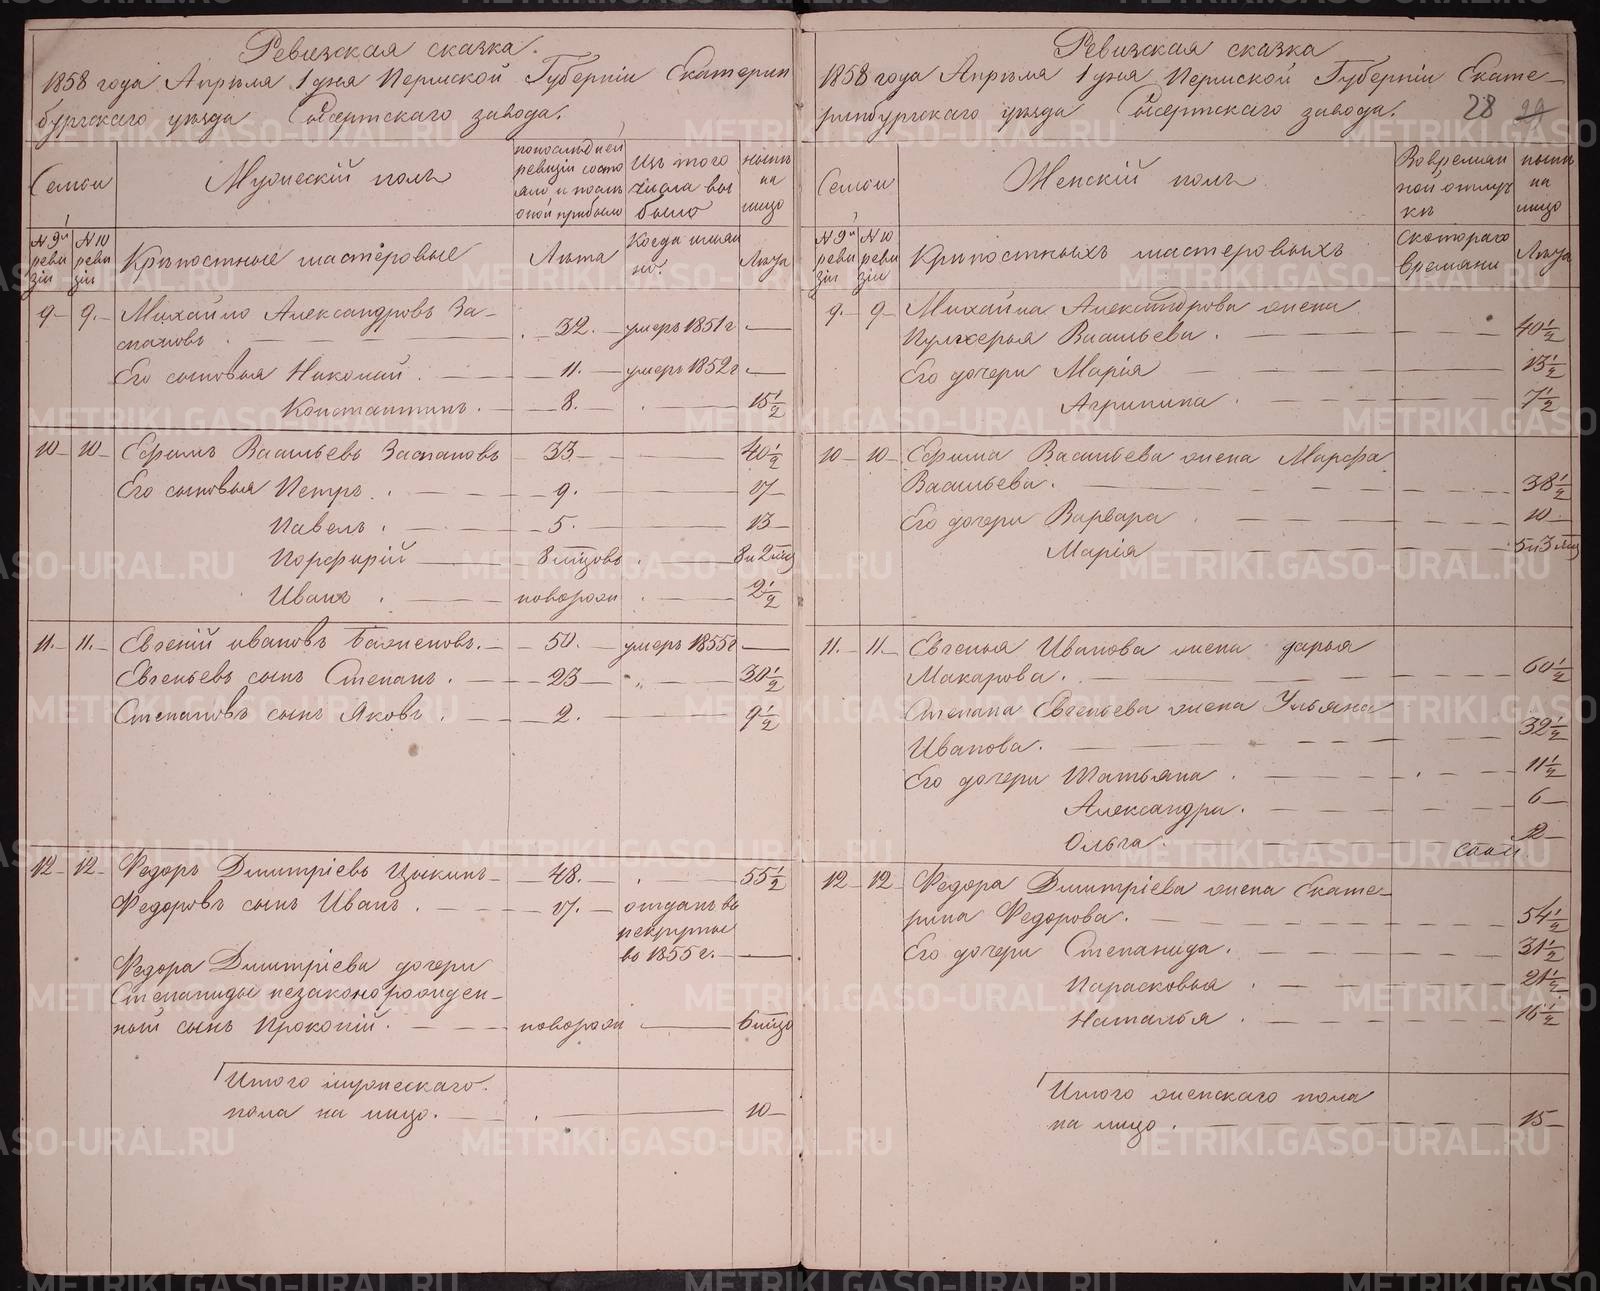 Ревизская сказка.
1858 года Апрѣля 1 дня Пермской Губерніи Екатерин
бургскаго уѣзда Сысертскаго завода.
Семьи
Мужескій полъ
по последней ревизіи состо яло и после оной прибыло
Изъ того числа вы было
ныне на лицо
№ 9й реви зіи
№ 10 реви зіи
Крѣпостные мастеровые
Лѣта
Когда имян но.
Лѣта
9 9. Михайло Александровъ За-
спановъ 32. умеръ 1851 г
Его сыновья Николай 11. умеръ 1852 г
Константинъ. 8. 15½
10 10 Ефимъ Васильевъ Заспановъ 33 40½
Его сыновья Петръ 9. 17
Павелъ. 5. 13
Порфирій 8 мцовъ 8 и 2 мец
Иванъ новорож 2½
11. 11. Евгеній ивановъ Баженовъ. 50. умеръ 1855 г
Евгеньевъ сынъ Степанъ. 23 30½
Степановъ сынъ Яковъ. 2. 9½
12 12 Федоръ Дмитріевъ Цыкинъ 48. 55½
Федоровъ сынъ Иванъ. 17. отданъ въ
рекруты
въ 1855 г.
Федора Дмитріева дочери
Степаниды незаконорожден-
ный сынъ Прокопій. новорож 6 мцо
Итого мужескаго.
пола на лицо. 10
Ревизская сказка
1858 года Апрѣля 1 дня Пермской Губерніи Екате-
ринбургскаго уѣзда Сысертскаго завода.
28 29
Семьи
Женскій полъ
Во времян ной отлуч кѣ
ныне на лицо
№ 9й реви зіи
№ 10 реви зіи
Крѣпостныхъ мастеровыхъ
Скотораго времяни
Лѣта
9. 9 Михайла Александрова жена
Пульхерья Васильева. 40½
Его дочери Марія 13½
Агрипина. 7½
10 10 Ефима Васильева жена Марфа
Васильева. 38½
Его дочери Варвара 10
Марія 5 и 3 мец
11. 11. Евгенья Иванова жена дарья
Макарова. 60½
Степана Евгеньева жена Ульяна
Иванова. 32½
Его дочери Татьяна. 11½
Александра. 6
Ольга. 2
12 12 Федора Дмитріева жена Екате-
рина Федорова. 54½
Его дочери Степанида. 31½
Парасковья 21½
Наталья 16½
Итого женскаго пола
на лицо. 15
METRIKI.GASO-URAL.RU